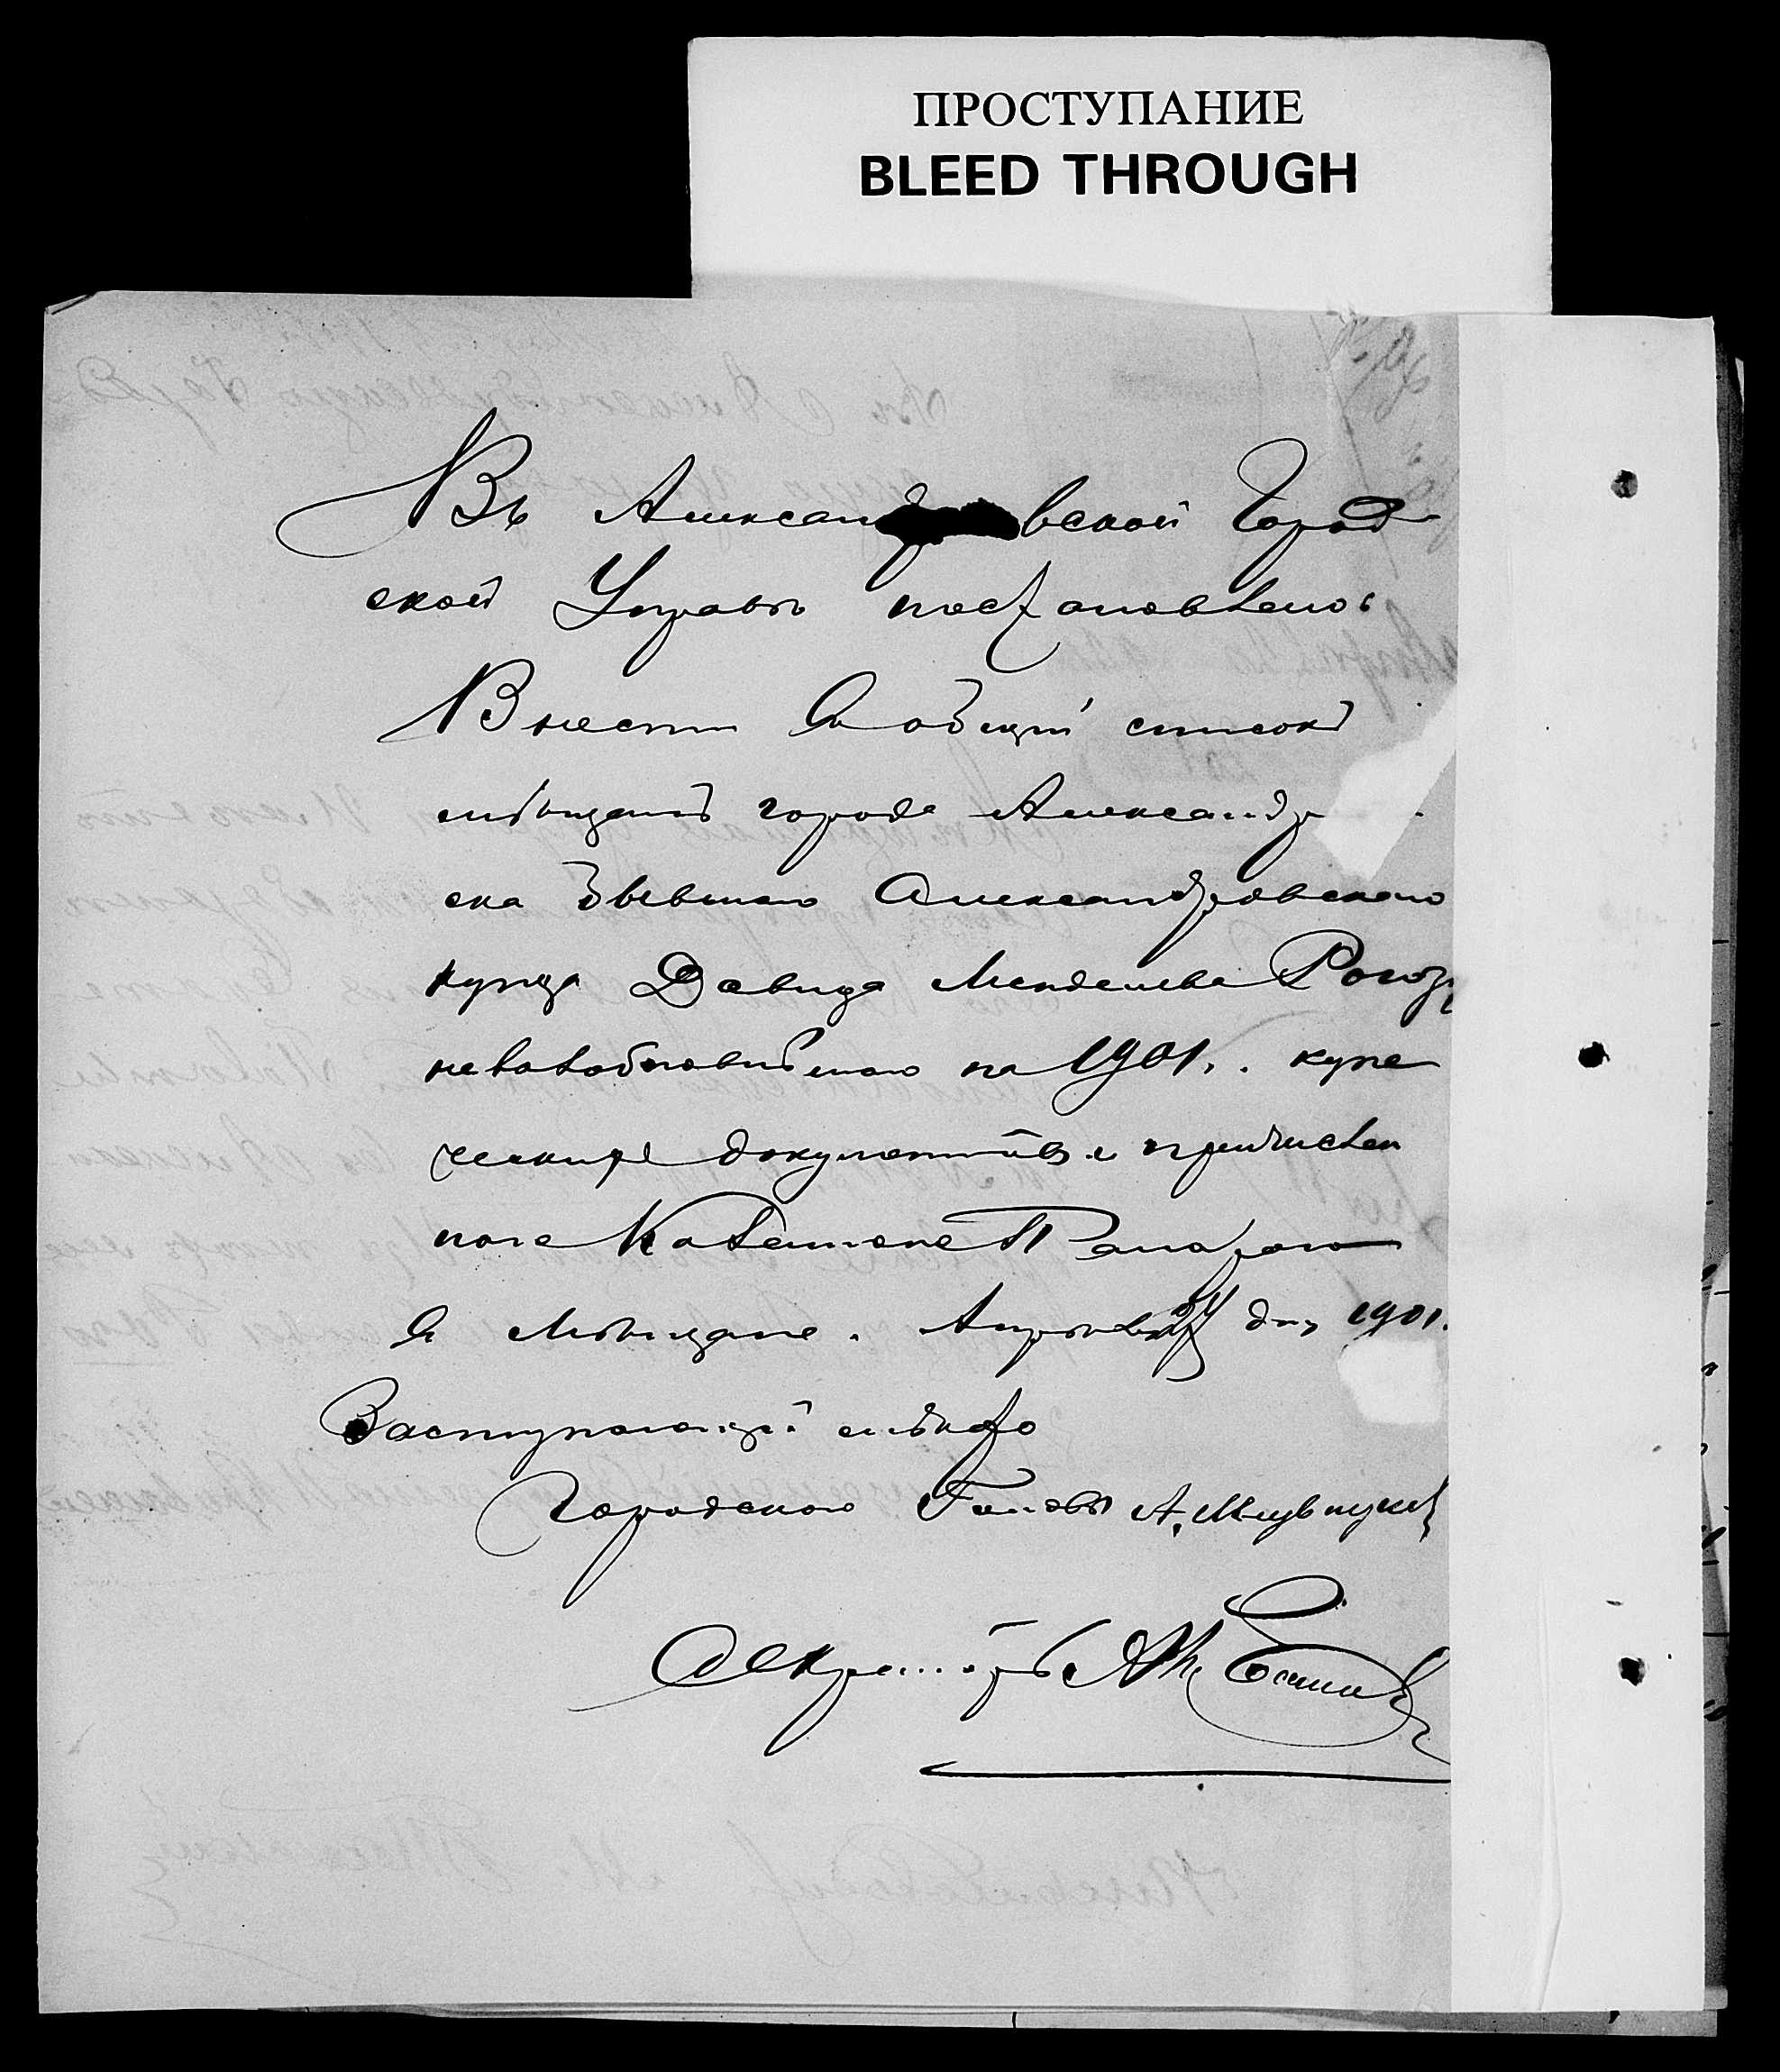 ПРОСТУПАНИЕ
BLEED THROUGH
Въ Александровской Город
ской Управѣ постановлено:
Внести въ общій списокъ
мѣщанъ города Александр
ска бывшаго Александровскаго
купца Давида Менделева
невозобновившаго на 1901. купе
ческихъ документовъ и причислен
наго Казенною Палатою
въ Мѣщане. Апрѣля 24 дня 1901.
Заступающій мѣсто
Городского Головы А.
Секретарь